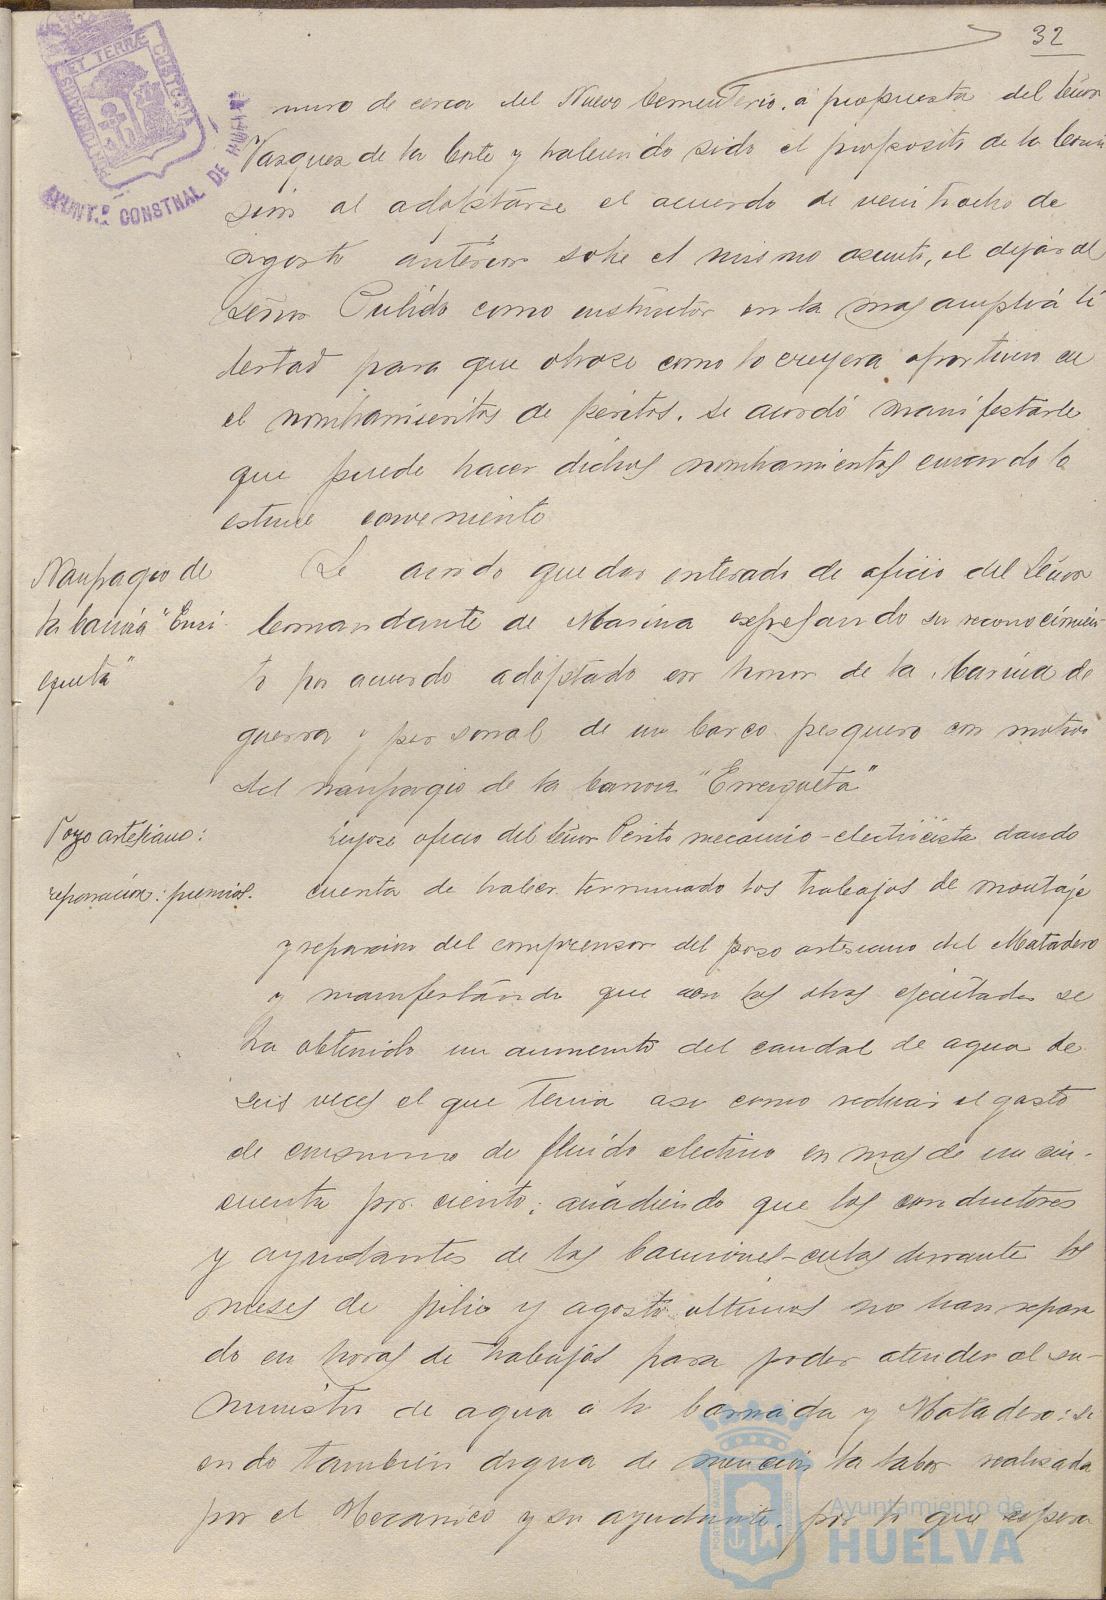 32
PORTUS MARIS ET TERRÆ CUSTODIA
AYUNT.º CONSTNAL DE HUELVA
muro de cerca del Nuevo Cementerio, á propuesta del Señor
Vazquez de la Corte y habiendo sido el proposito de la Comi
sion al adoptarse el acuerdo de veintiocho de
agosto anterior sobre el mismo asunto, el dejar al
señor Pulido como instructor en la mas amplia li
bertad para que obrase como lo creyera oportuno en
el nombramientos de peritos, se acordó manifestarle
que puede hacer dichos nombramientos cuando lo
estime conveniente
Naufragio de
la canoa "Enri
queta"
Se acordo quedar enterado de oficio del Señor
Comandante de Marina expresando su reconocimien
to por acuerdo adoptado en honor de la Marina de
guerra y personal de un barco pesquero con motivo
del naufragio de la canoa "Enriqueta"
Pozo artesiano:
reparación: premios.
Leyose oficio del Señor Perito mecanico-electricista dando
cuenta de haber terminado los trabajos de montaje
y reparacion del compresor del pozo artesiano del Matadero
y manifestando que con las obras ejecutadas se
ha obtenido un aumento del caudal de agua de
seis veces el que tenia asi como reducir el gasto
de consumo de fluido electrico en mas de un cin-
cuenta por ciento; añadiendo que los conductores
y ayudantes de los camiones-cubas durante los
meses de julio y agosto ultimos no han repara
do en horas de trabajos para poder atender al su-
ministro de agua a la barriada y Matadero: si
endo tambien digna de mención la labor realizada
por el Mecanico y su ayudante, por lo que espera
Ayuntamiento de
HUELVA